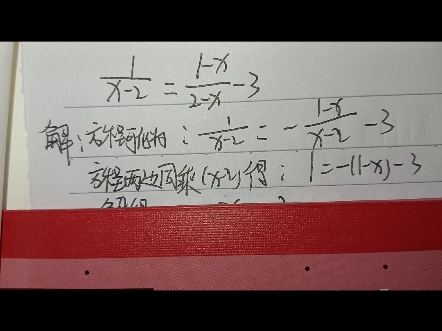 1/(x-2) = (1-x)/(2-x) - 3
解：方程可化为：1/(x-2) = - (1-x)/(x-2) - 3
方程两边同乘(x-2)得：1=-(1-x)-3